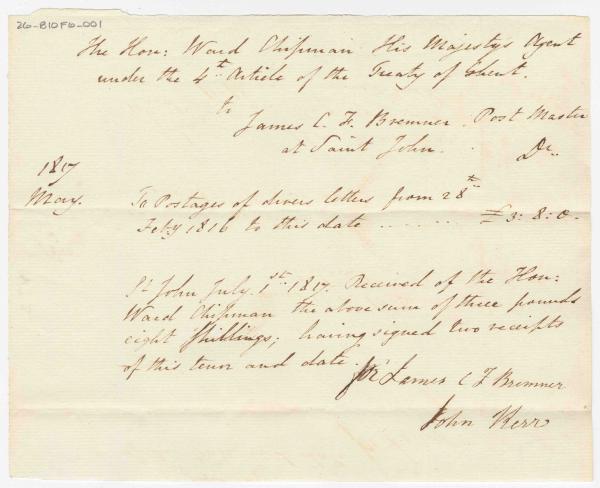 26-B10F6-001
The Hon: Ward Chipman His Majesty's Agent
under the 4th Article of the Treaty of Ghent.
to
James C. F. Bremner. Post Master
at Saint John.
Dr.
1817
May.
To Postages of divers letters from 28th
Feby 1816 to this date ........ £3: 8: 0.
St John July 1st 1817. Received of the Hon:
Ward Chipman the above sum of three pounds
eight Shillings; having signed two receipts
of this tenor and date.
for James C F Bremner
John Kerr